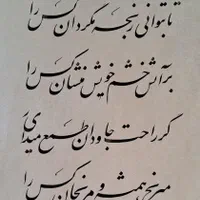 تا بتوانی رنجه مگردان کس را
بر آتش خشم خویش منشان کس را
گر راحت جاودان طمع میداری
میرنج همیشه و مرنجان کس را